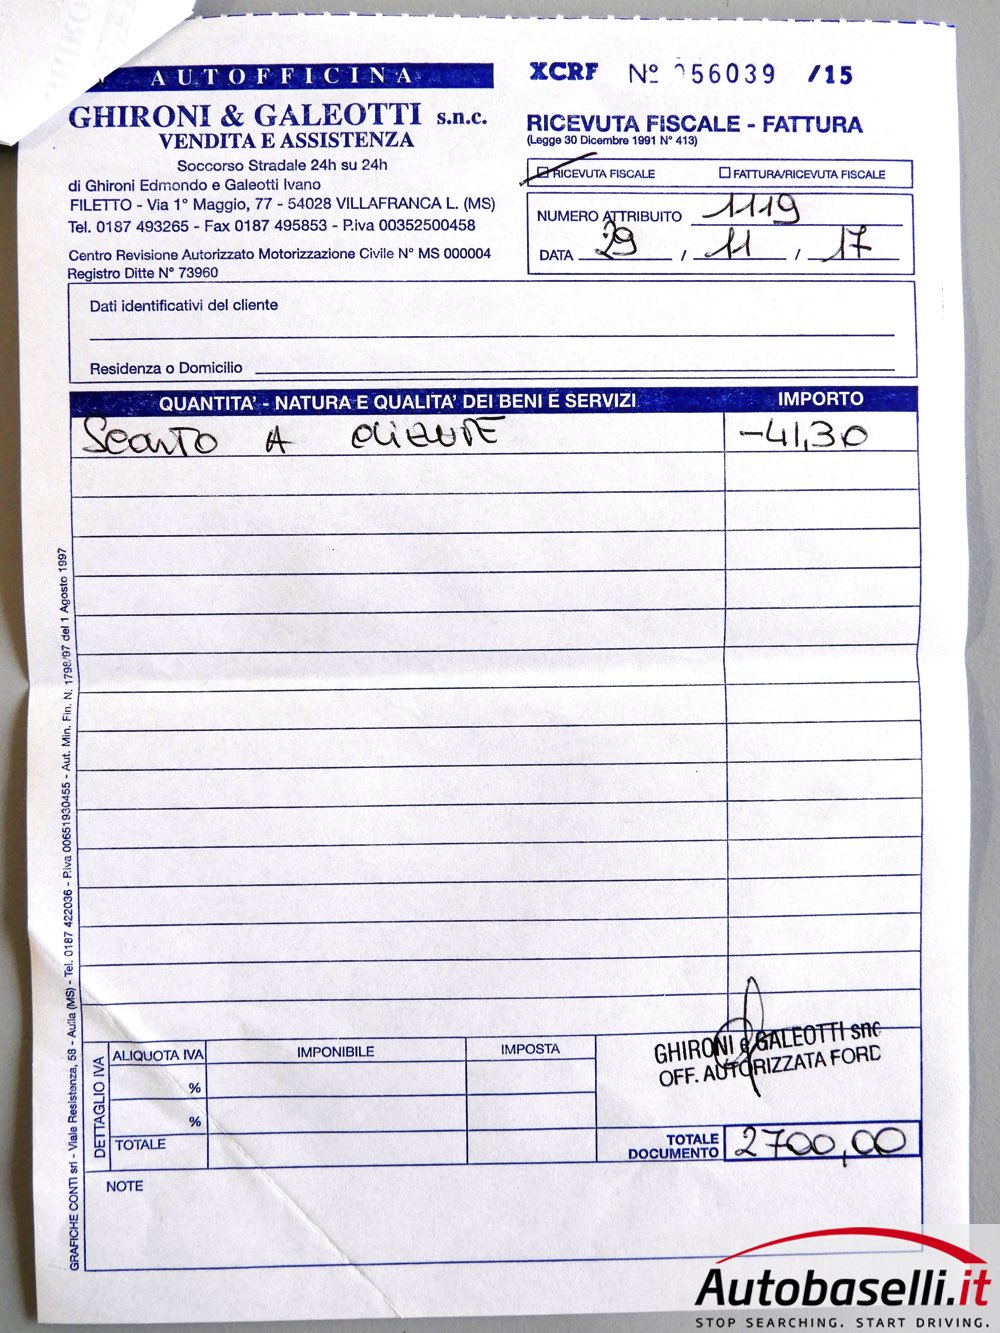 AUTOFFICINA
GHIRONI & GALEOTTI s.n.c.
VENDITA E ASSISTENZA
Soccorso Stradale 24h su 24h
di Ghironi Edmondo e Galeotti Ivano
FILETTO - Via 1° Maggio, 77 - 54028 VILLAFRANCA L. (MS)
Tel. 0187 493265 - Fax 0187 495853 - P.iva 00352500458
Centro Revisione Autorizzato Motorizzazione Civile N° MS 000004
Registro Ditte N° 73960
XCRF Nº 056039 /15
RICEVUTA FISCALE - FATTURA
(Legge 30 Dicembre 1991 N° 413)
RICEVUTA FISCALE FATTURA/RICEVUTA FISCALE
NUMERO ATTRIBUITO 1119
DATA 29 / 11 / 17
Dati identificativi del cliente
Residenza o Domicilio
QUANTITA' - NATURA E QUALITA' DEI BENI E SERVIZI IMPORTO
SCONTO A CLIENTE -41,30
GRAFICHE CONTI srl - Viale Resistenza, 58 - Aulla (MS) - Tel. 0187 422036 - P.iva 00651930455 - Aut. Min. Fin. N. 1798/97 del 1 Agosto 1997
GHIRONI e GALEOTTI snc
OFF. AUTORIZZATA FORD
DETTAGLIO IVA
ALIQUOTA IVA IMPONIBILE IMPOSTA
%
%
TOTALE
TOTALE DOCUMENTO 2700,00
NOTE
Autobaselli.it
STOP SEARCHING. START DRIVING.